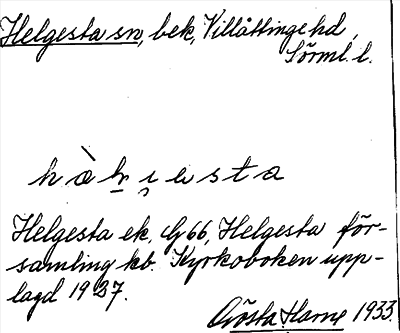 Helgesta sn, bek, Villåttinge hd,
Sörml. l.
Helgesta ek. dj 66, Helgesta för-
samling kb. Kyrkoboken upp-
lagd 1937.
Gösta Harne 1933